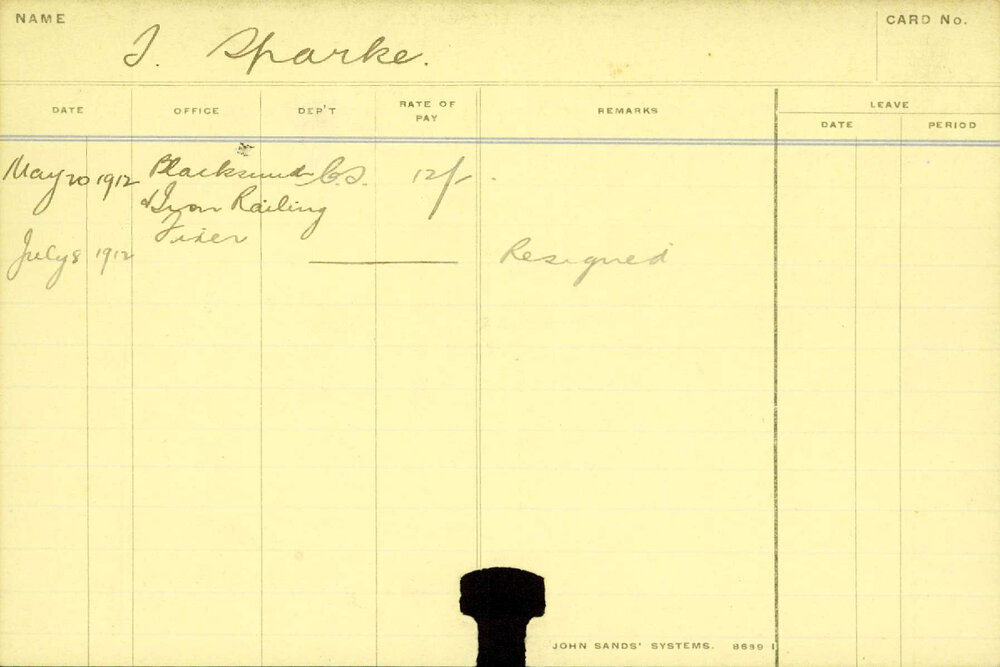 NAME
J. Sparke.
CARD No.
DATE OFFICE DEP'T RATE OF PAY REMARKS LEAVE
DATE PERIOD
May 20 1912 Blacksmith C.S. 12/-
& Iron Railing
Fixer
July 8 1912 Resigned
JOHN SANDS' SYSTEMS.